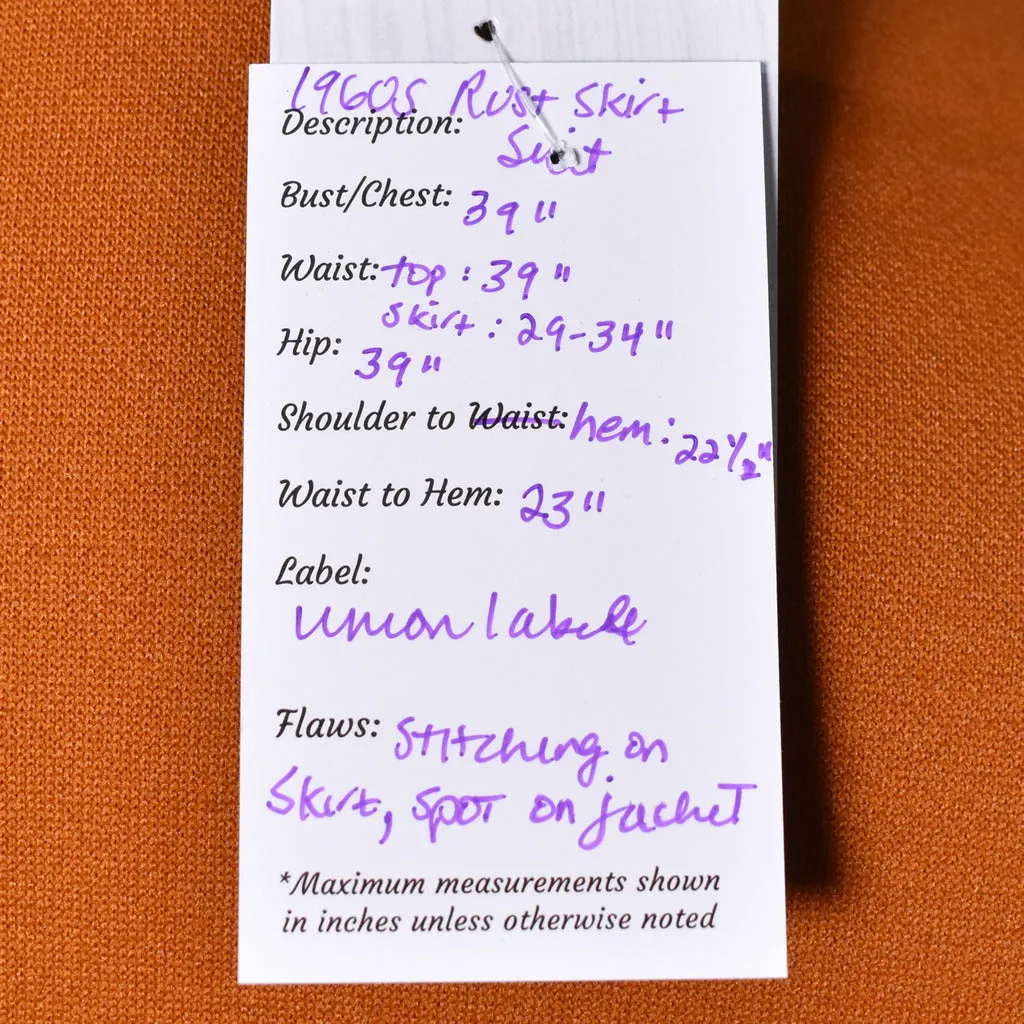 1960s Rust Skirt
Description:
Suit
Bust/Chest: 39"
Waist: top: 39"
skirt: 29-34"
Hip: 39"
Shoulder to Waist: hem: 22 1/2"
Waist to Hem: 23"
Label:
Union label
Flaws: Stitching on
Skirt, spot on jacket
*Maximum measurements shown
in inches unless otherwise noted